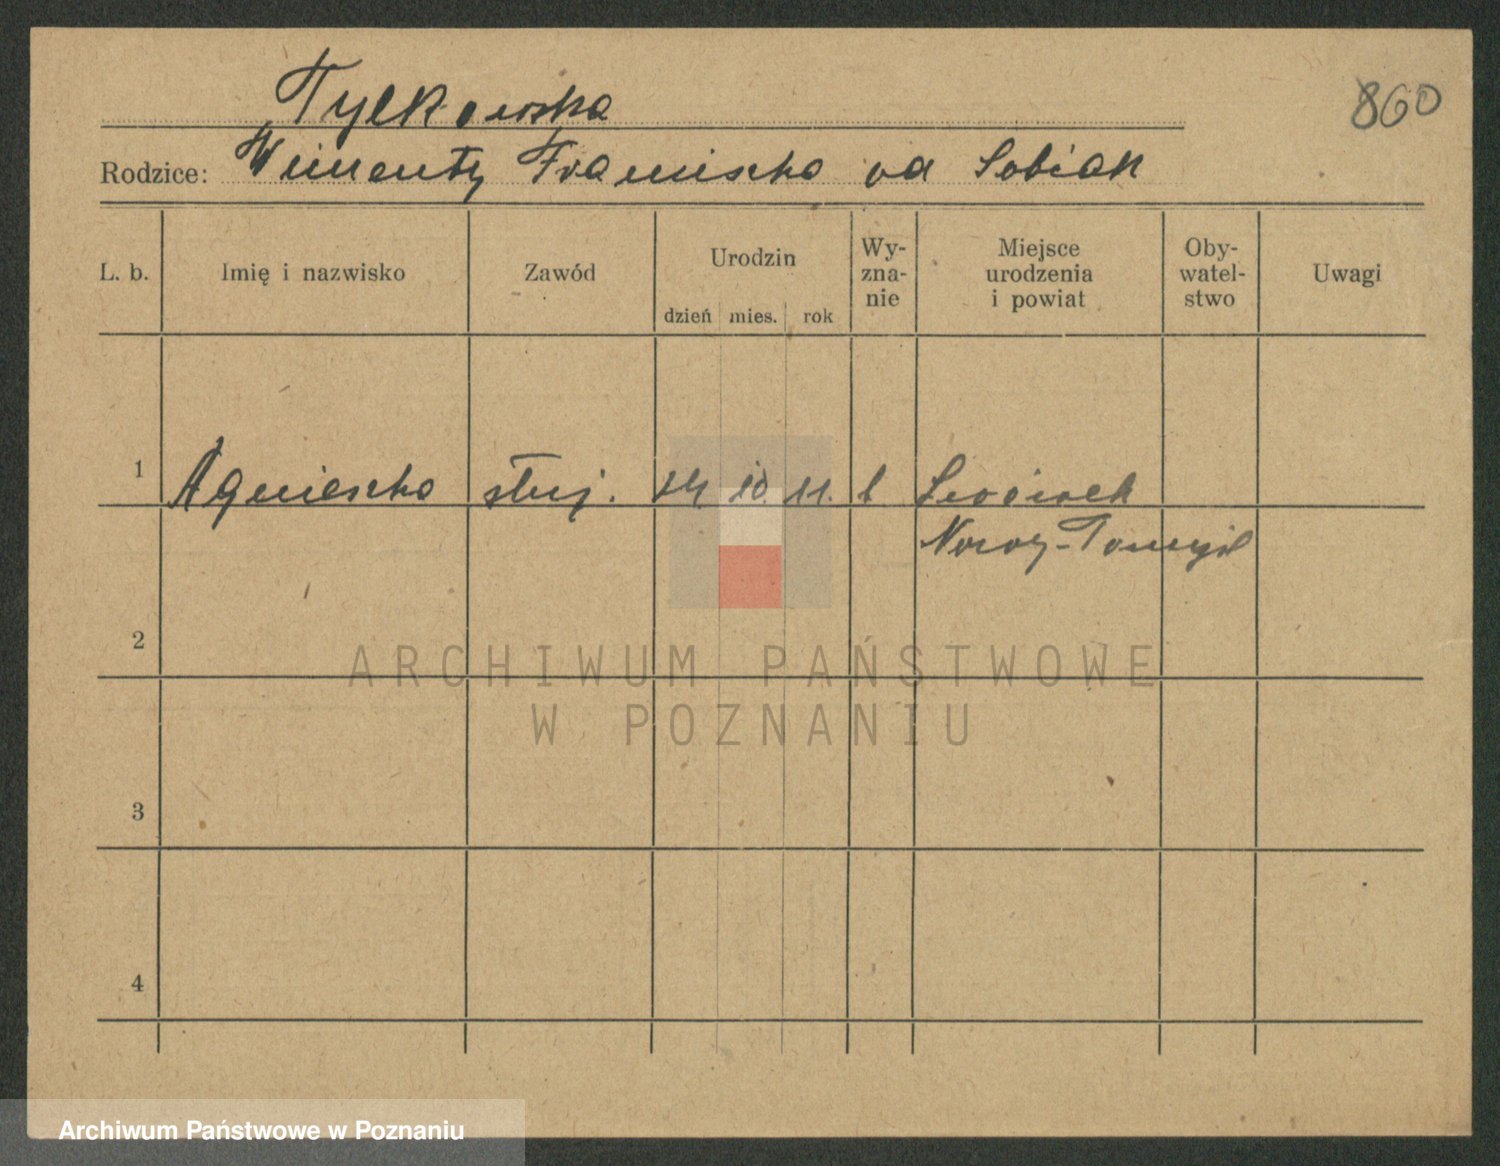 Tylkowska
860
Rodzice: Wincenty Franciszka od Sobiak
L. b. Imię i nazwisko Zawód Urodzin dzień mies. rok Wy-zna-nie Miejsce urodzenia i powiat Oby-watel-stwo Uwagi
1 Agnieszka służ. 14 10. 11. Lwówek
Nowy-Tomyśl
2
3
4
ARCHIWUM PAŃSTWOWE
W POZNANIU
Archiwum Państwowe w Poznaniu